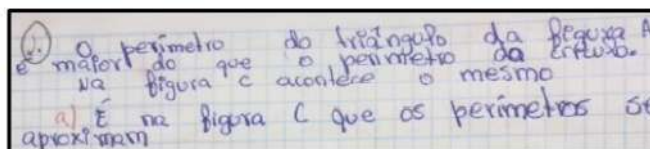 2. O perímetro do triângulo da figura A
é maior do que o perímetro da
na figura C acontece o mesmo
a) É na figura C que os perímetros se
aproximam